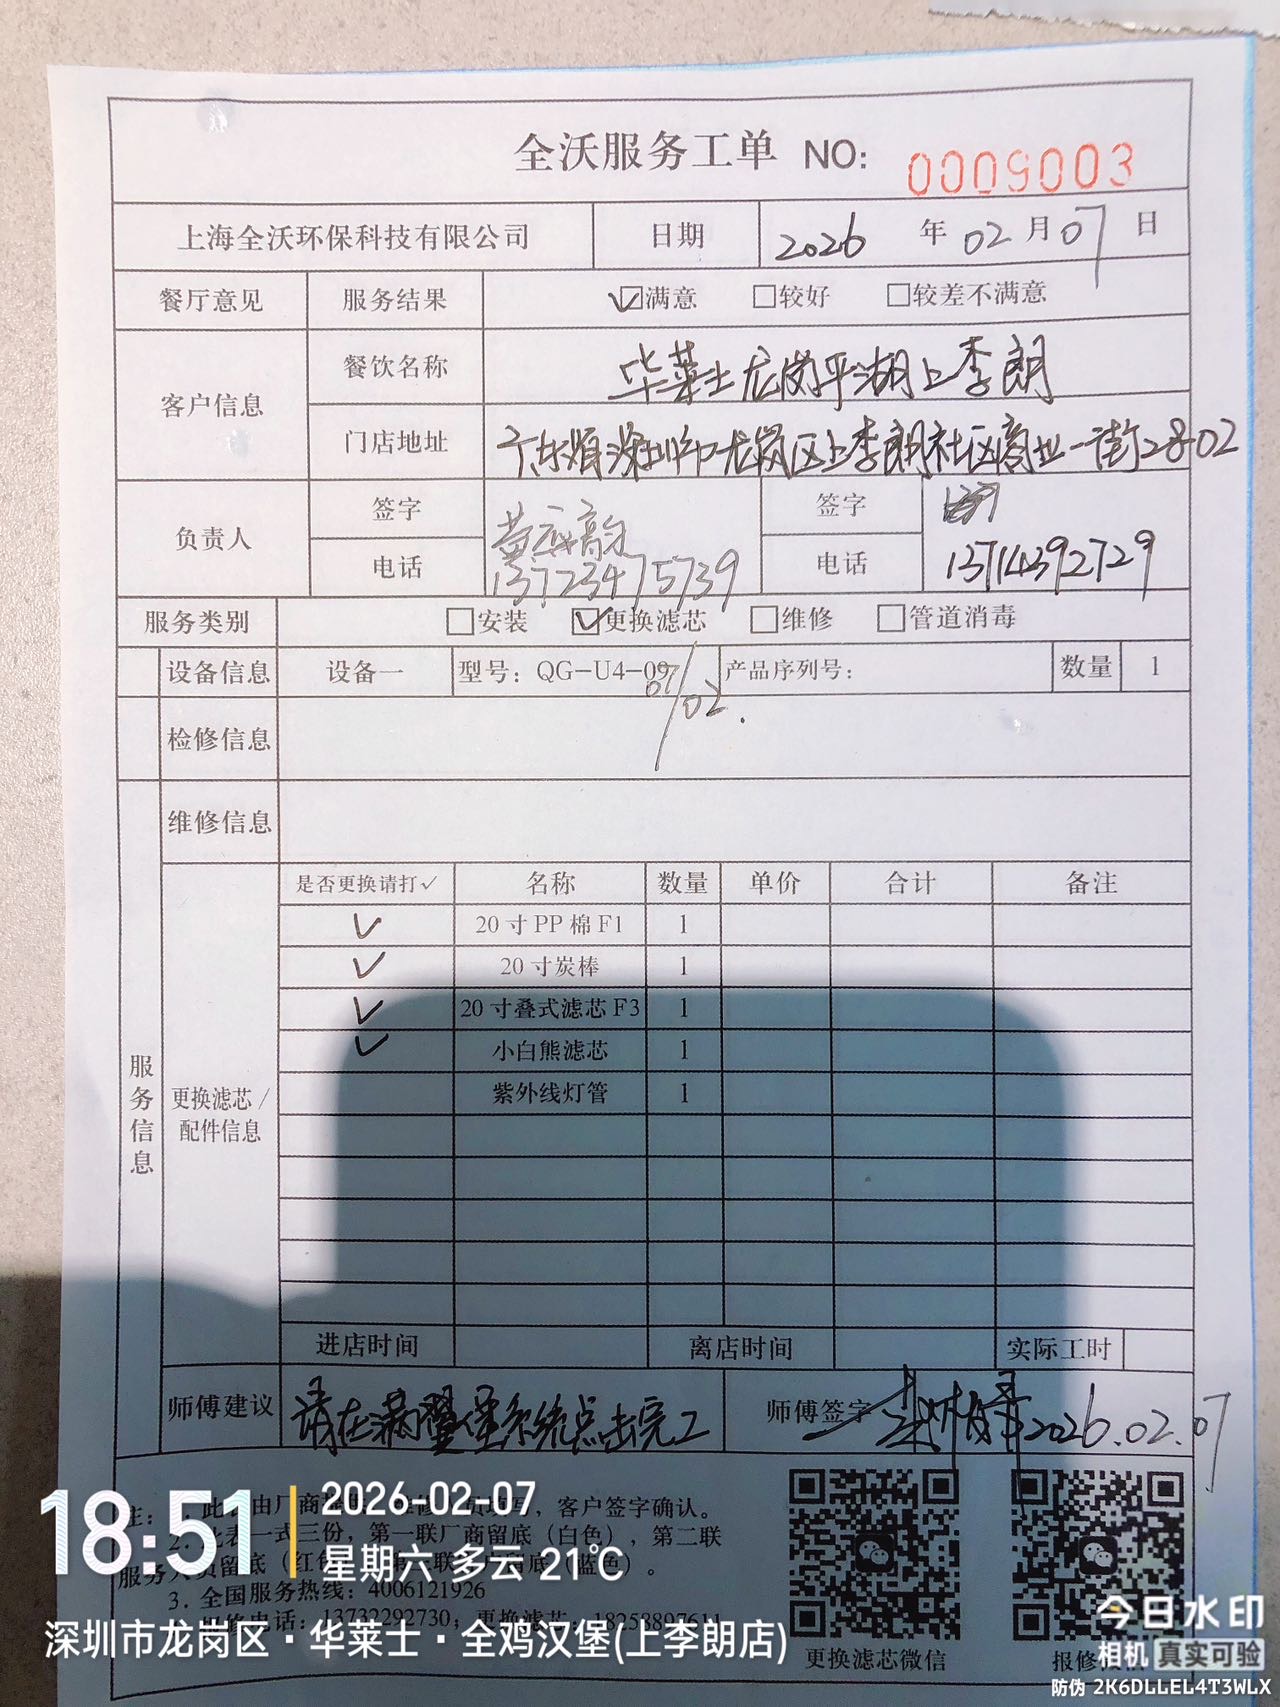 全沃服务工单 NO: 0009003
上海全沃环保科技有限公司 日期 2026 年 02 月 07 日
餐厅意见 服务结果 ☑满意 □较好 □较差不满意
客户信息 餐饮名称 华莱士龙岗平湖上李朗
门店地址 广东省深圳市龙岗区上李朗社区商业一街28-02
负责人 签字 签字
电话 13723475739 电话 13714392729
服务类别 □安装 ☑更换滤芯 □维修 □管道消毒
设备信息 设备一 型号：QG-U4-09 产品序列号： 数量 1
07/02.
检修信息
维修信息
服务信息
更换滤芯/配件信息
是否更换请打✓ 名称 数量 单价 合计 备注
✓ 20寸PP棉F1 1
✓ 20寸炭棒 1
✓ 20寸叠式滤芯F3 1
✓ 小白熊滤芯 1
紫外线灯管 1
进店时间 离店时间 实际工时
师傅建议 请在满堡系统点击完工 师傅签字 2026.02.07
注：1. 此表由厂商填写，客户签字确认。
2. 此表一式三份，第一联厂商留底（白色），第二联
服务人员留底（红色），第三联留底（蓝色）。
3. 全国服务热线：4006121926
报修电话：13732292730；更换滤芯：18258897611
更换滤芯微信 报修微信
18:51 2026-02-07
星期六 多云 21℃
深圳市龙岗区·华莱士·全鸡汉堡(上李朗店)
今日水印
相机 真实可验
防伪 2K6DLLEL4T3WLX